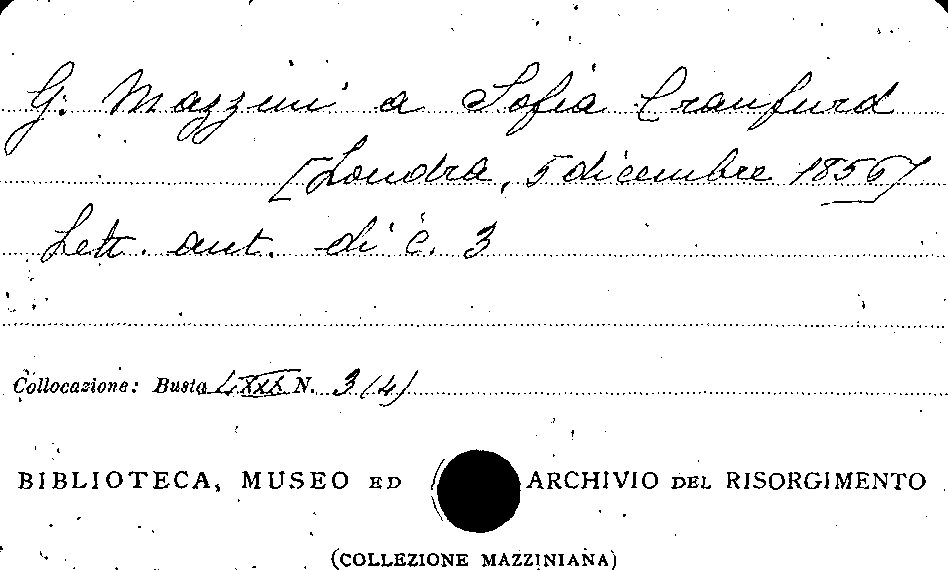 G. Mazzini a Sofia Craufurd
[Londra, 5 dicembre 1856]
Lett. aut. di c. 3
Collocazione: Busta LXXX N. 3(4)
BIBLIOTECA, MUSEO ED ARCHIVIO DEL RISORGIMENTO
(COLLEZIONE MAZZINIANA)